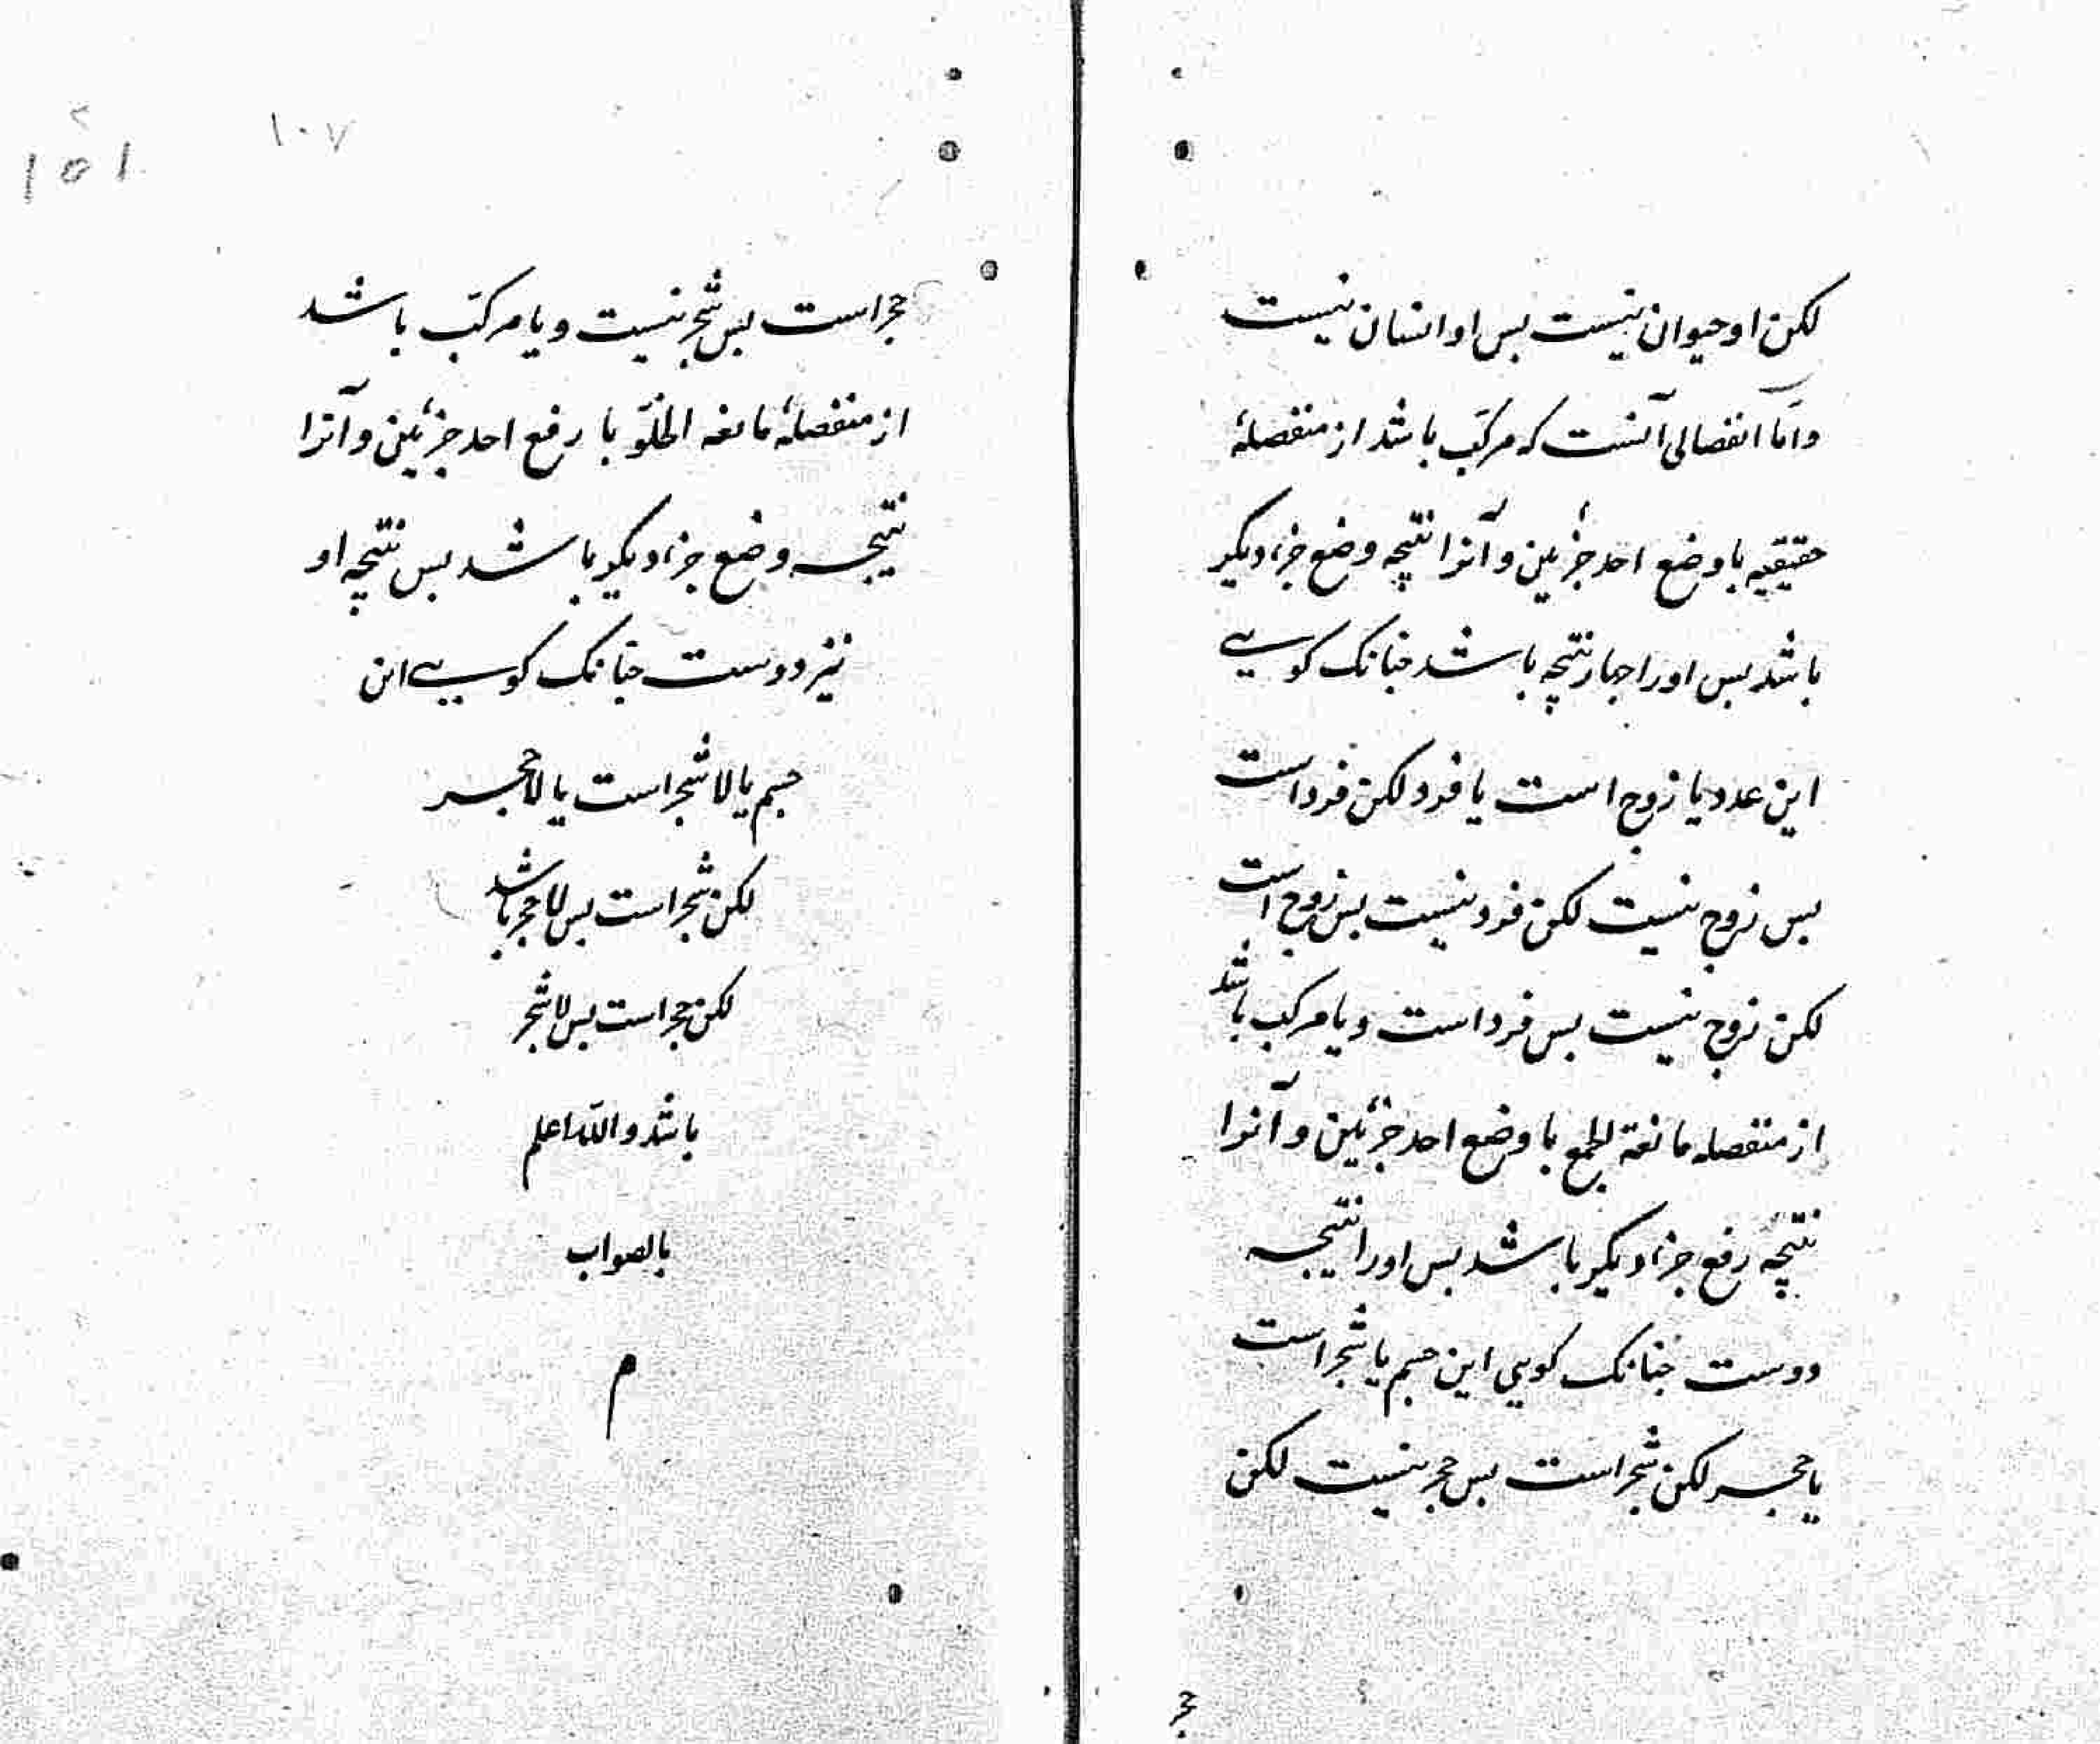 لکن او حیوان نیست بس او انسان نیست
واَمّا انفصالی آنست که مرکّب باشد از منفصلهٔ
حقیقیه با وضع احد جزئین و آنرا نتیجه وضع جزء دیکر
باشد بس اورا جهار نتیجه باشد جنانک کویی
این عدد یا زوج است یا فرد لکن فرد است
بس زوج نیست لکن فرد نیست بس زوج است
لکن زوج نیست بس فرد است ویا مرکب باشد
از منفصله مانعة الجمع با وضع احد جزئین و آنرا
نتیجهٔ رفع جزء دیکر باشد بس اورا نتیجه
دوست جنانک کویی این جسم یا شجر است
یا حجر لکن شجر است بس حجر نیست لکن
حجر
۱۰۷
۱۵۱
حجر است بس شجر نیست ویا مرکّب باشد
از منفصلهٔ مانعه الخلوّ با رفع احد جزئین و آنرا
نتیجه وضع جزء دیکر باشد بس نتیجه او
نیز دوست جنانک کویی این
جسم یا لا شجر است یا لا حجر
لکن شجر است بس لا حجر باشد
لکن حجر است بس لا شجر
باشد والله اعلم
بالصواب
م